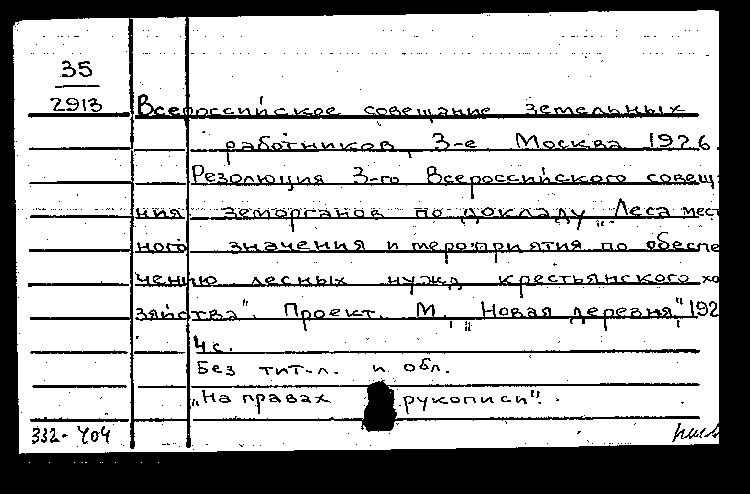 35
2913
Всероссийское совещание земельных
работников, 3-е. Москва 1926.
Резолюция 3-го Всероссийского совещ
ния земорганов по докладу „Леса мест
ного значения и мероприятия по обеспе
чению лесных нужд крестьянского хо
зяйства". Проект. М., „Новая деревня", 192
4 с.
Без тит-л. и обл.
„На правах рукописи".
332-404